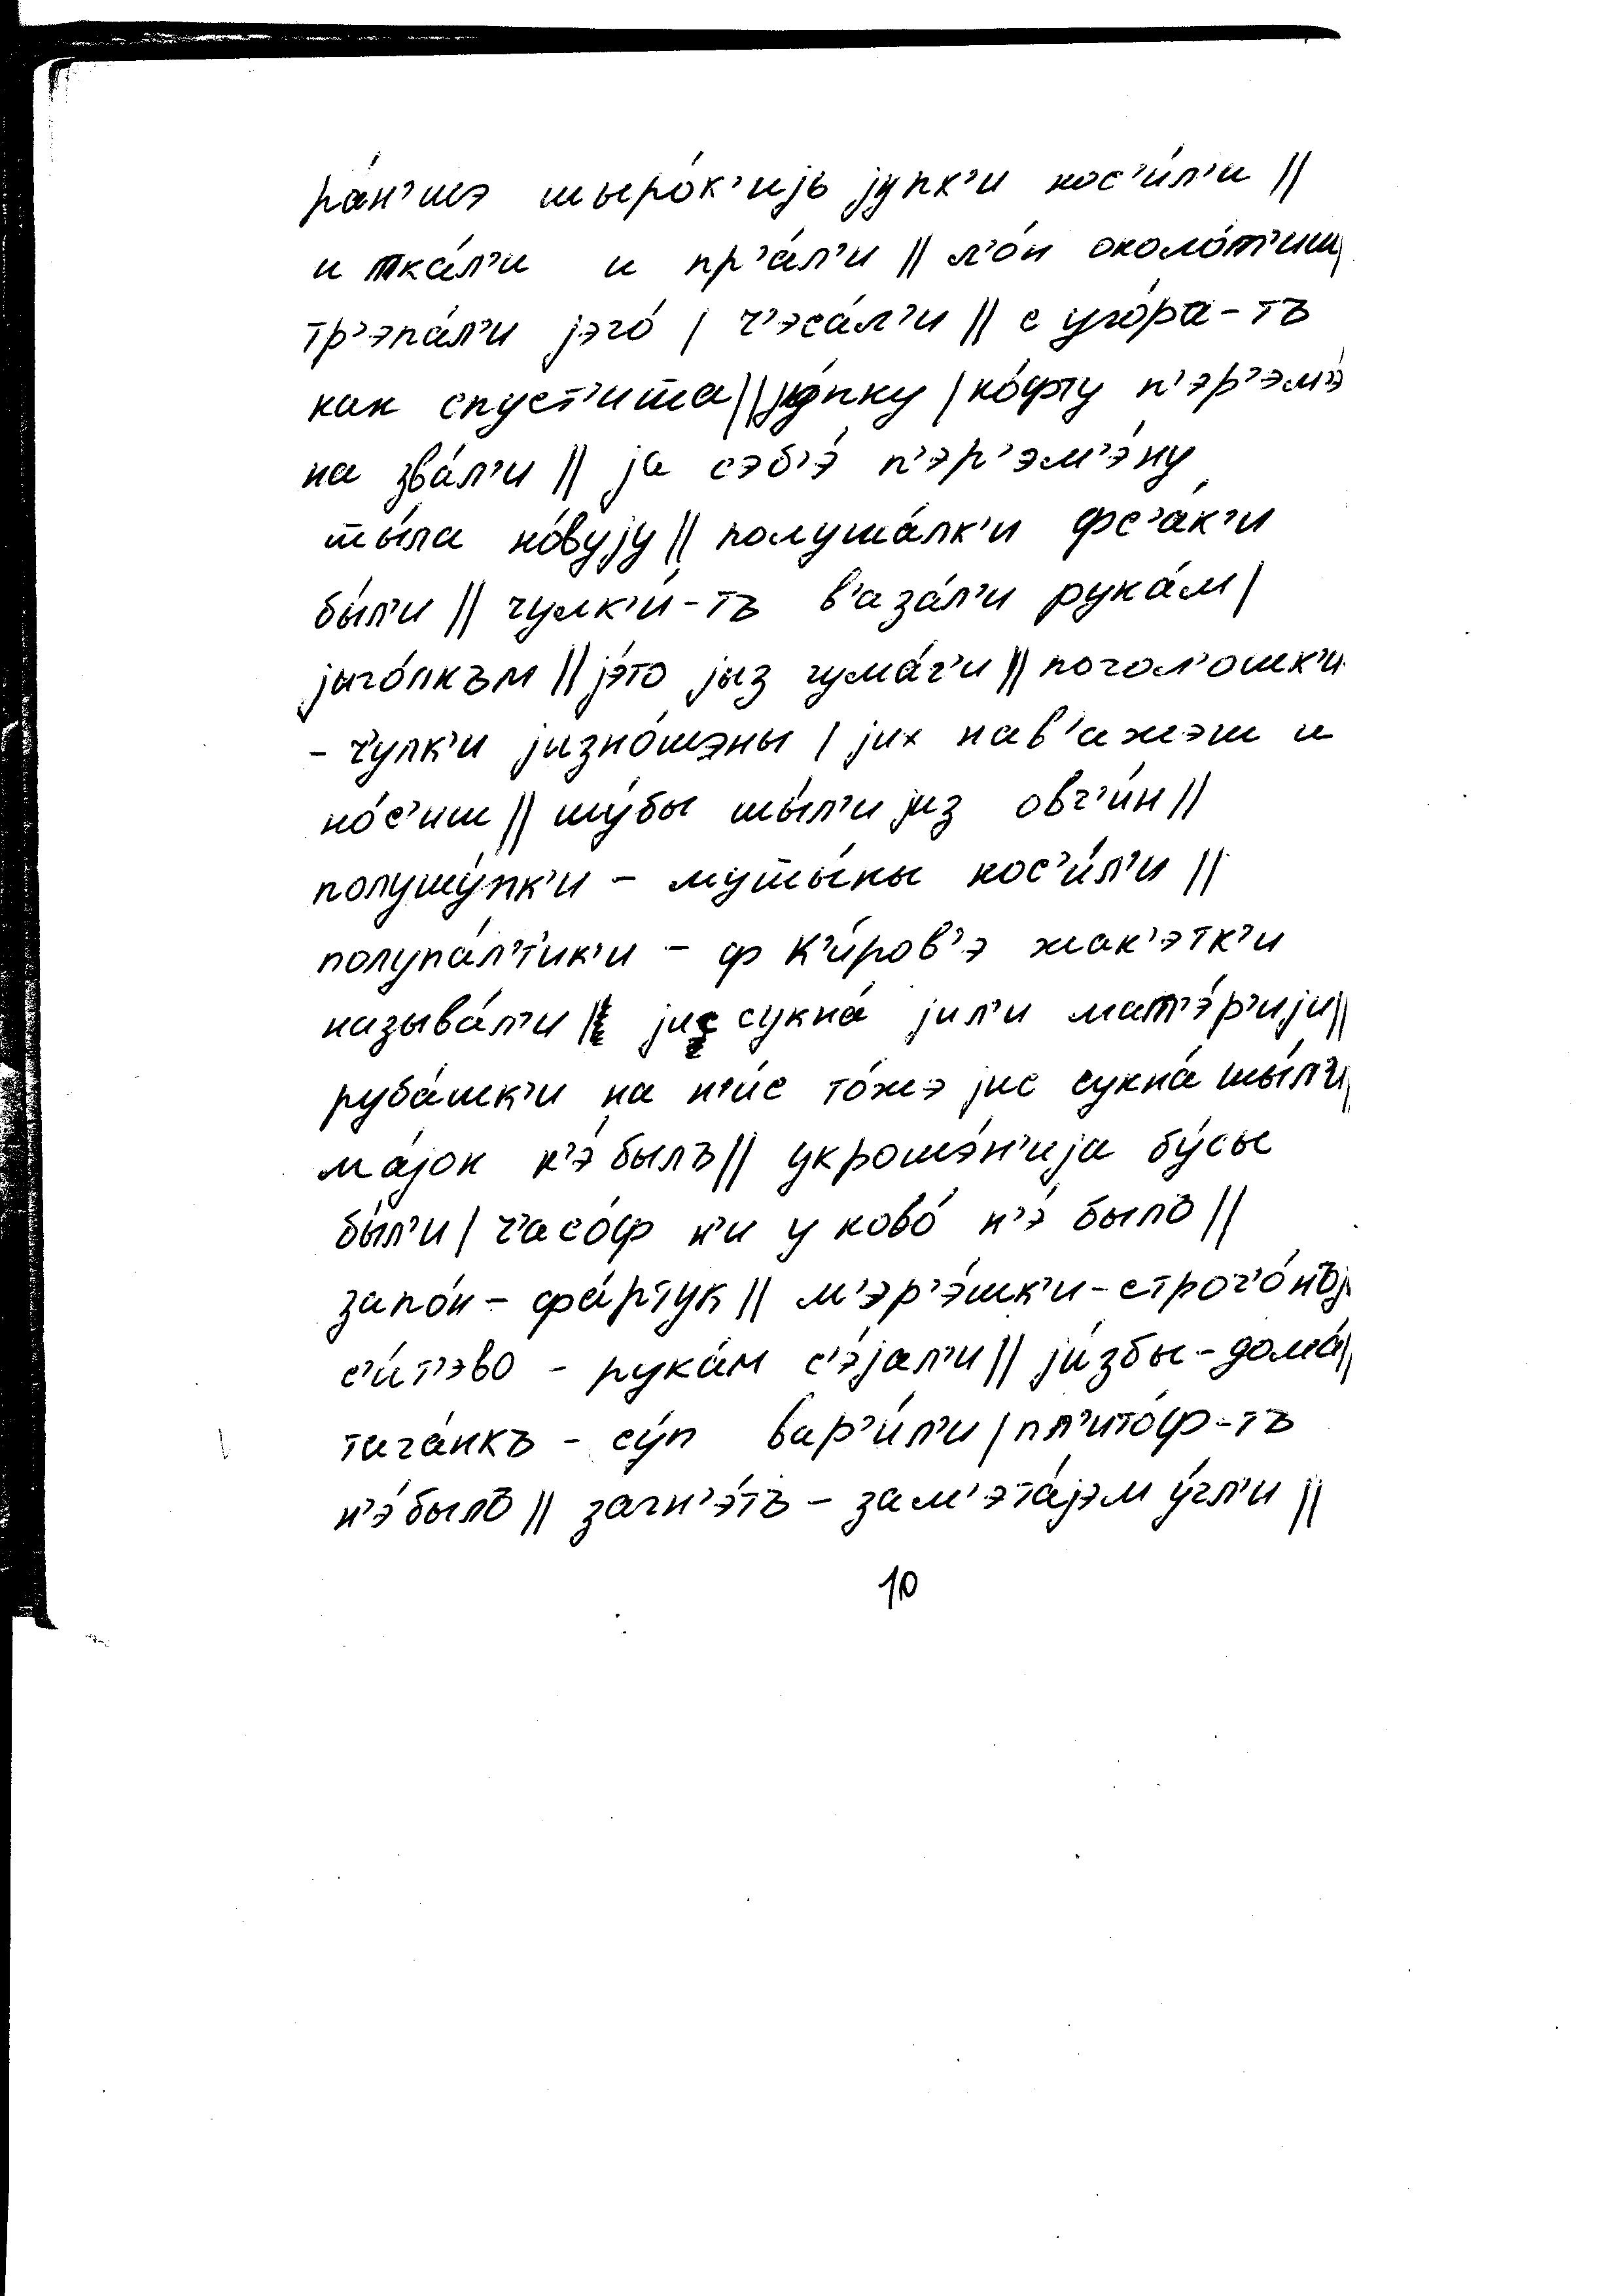 ра́н'шэ шыро́к'иjь jупк'и нос'и́л'и ||
и тка́л'и и пр'а́л'и || л'о́н около́т'иш|
тр'эпа́л'и jэго́ | ч'эса́л'и || с уго́ра-тъ
как спуст'ита || jу́пку | ко́фту п'эр'эм'э́
на зва́л'и || jа сэб'э́ п'эр'эм'э́ну
шы́ла но́вуjу || полуша́лк'и фс'а́к'и
бы́л'и || чулк'и́-тъ в'аза́л'и рука́м |
jыго́лкъм || jэ́то jыз гума́г'и || погол'ошк'и
- ч'улк'и jизно́шэны | jих нав'ажэш и
но́с'иш || шу́бы шы́л'и jиз овч'и́н ||
полушу́пк'и - мушы́ны нос'и́л'и ||
полупа́л'т'ик'и - ф К'и́ров'э жак'этк'и
называ́л'и || jис сукна́ jил'и мат'э́р'иjи ||
руба́шк'и на н'и́с то́жэ jис сукна́ шы́л'и |
ма́jок н'э́ былъ || украшэ́н'иjа бу́сы
бы́л'и | ч'асо́ф н'и у ково́ н'э́ былъ ||
запо́н - фа́ртук || м'эр'э́шк'и - строч'о́нъj
с'и́т'эво - рука́м с'э́jал'и || jи́збы - дома́ ||
тага́нкъ - су́п вар'и́л'и | пл'ито́ф-тъ
н'э́ былъ || загн'э́тъ - зам'эта́jэм у́гл'и ||
10